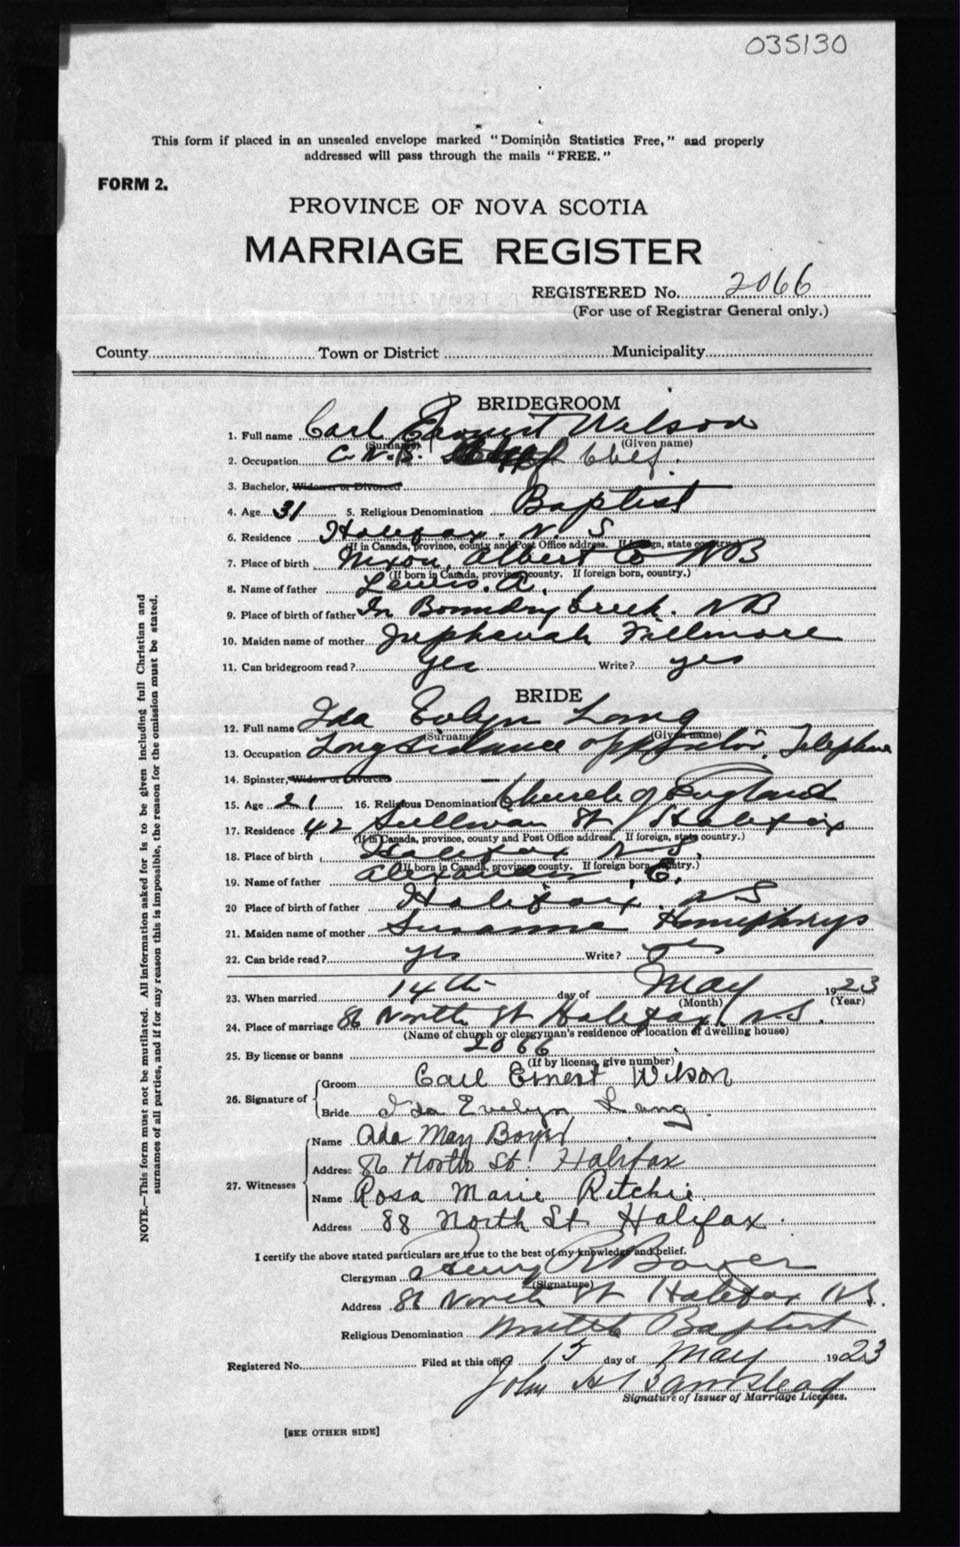 035130
This form if placed in an unsealed envelope marked "Dominion Statistics Free," and properly
addressed will pass through the mails "FREE."
FORM 2.
PROVINCE OF NOVA SCOTIA
MARRIAGE REGISTER
REGISTERED No. 2066
(For use of Registrar General only.)
County Town or District Municipality
BRIDEGROOM
1. Full name Carl Ernest Wilson
(Surname) (Given name)
2. Occupation C.N.R. Chef.
3. Bachelor, Widower or Divorced
4. Age 31 5. Religious Denomination Baptist
6. Residence Halifax. N. S
(If in Canada, province, county and Post Office address. If foreign, state country.)
7. Place of birth Nixon, Albert Co NB
(If born in Canada, province, county. If foreign born, country.)
8. Name of father Lewis. A.
9. Place of birth of father In Boundry Creek. NB
10. Maiden name of mother Fillmore
11. Can bridegroom read? yes Write? yes
BRIDE
12. Full name Ida Evlyn Lang
(Surname) (Given name)
13. Occupation Long Distance Telephone
14. Spinster, Widow or Divorced
15. Age 21 16. Religious Denomination Church of England
17. Residence 42 Sullivan St Halifax
(If in Canada, province, county and Post Office address. If foreign, state country.)
18. Place of birth Halifax N-S.
(If born in Canada, province, county. If foreign born, country.)
19. Name of father Alexander E.
20 Place of birth of father Halifax. NS
21. Maiden name of mother Susanna Humphrys
22. Can bride read? yes Write? yes
23. When married 14th day of May 1923
(Month) (Year)
24. Place of marriage 86 North St Halifax N.S.
(Name of church or clergyman's residence or location of dwelling house)
25. By license or banns 2066
(If by license, give number)
26. Signature of
Groom Carl Ernest Wilson
Bride Ida Evelyn Lang.
27. Witnesses
Name Ada May Boyer
Address 86 North St. Halifax
Name Rosa Marie Ritchie.
Address 88 North St. Halifax.
I certify the above stated particulars are true to the best of my knowledge and belief.
Clergyman Henry R Boyer
(Signature)
Address 86 North St Halifax N.S.
Religious Denomination United Baptist
Registered No. Filed at this office 15 day of May 1923
John H Barnstead
Signature of Issuer of Marriage Licenses.
[SEE OTHER SIDE]
NOTE.—This form must not be mutilated. All information asked for is to be given including full Christian and
surnames of all parties, and if for any reason this is impossible, the reason for the omission must be stated.